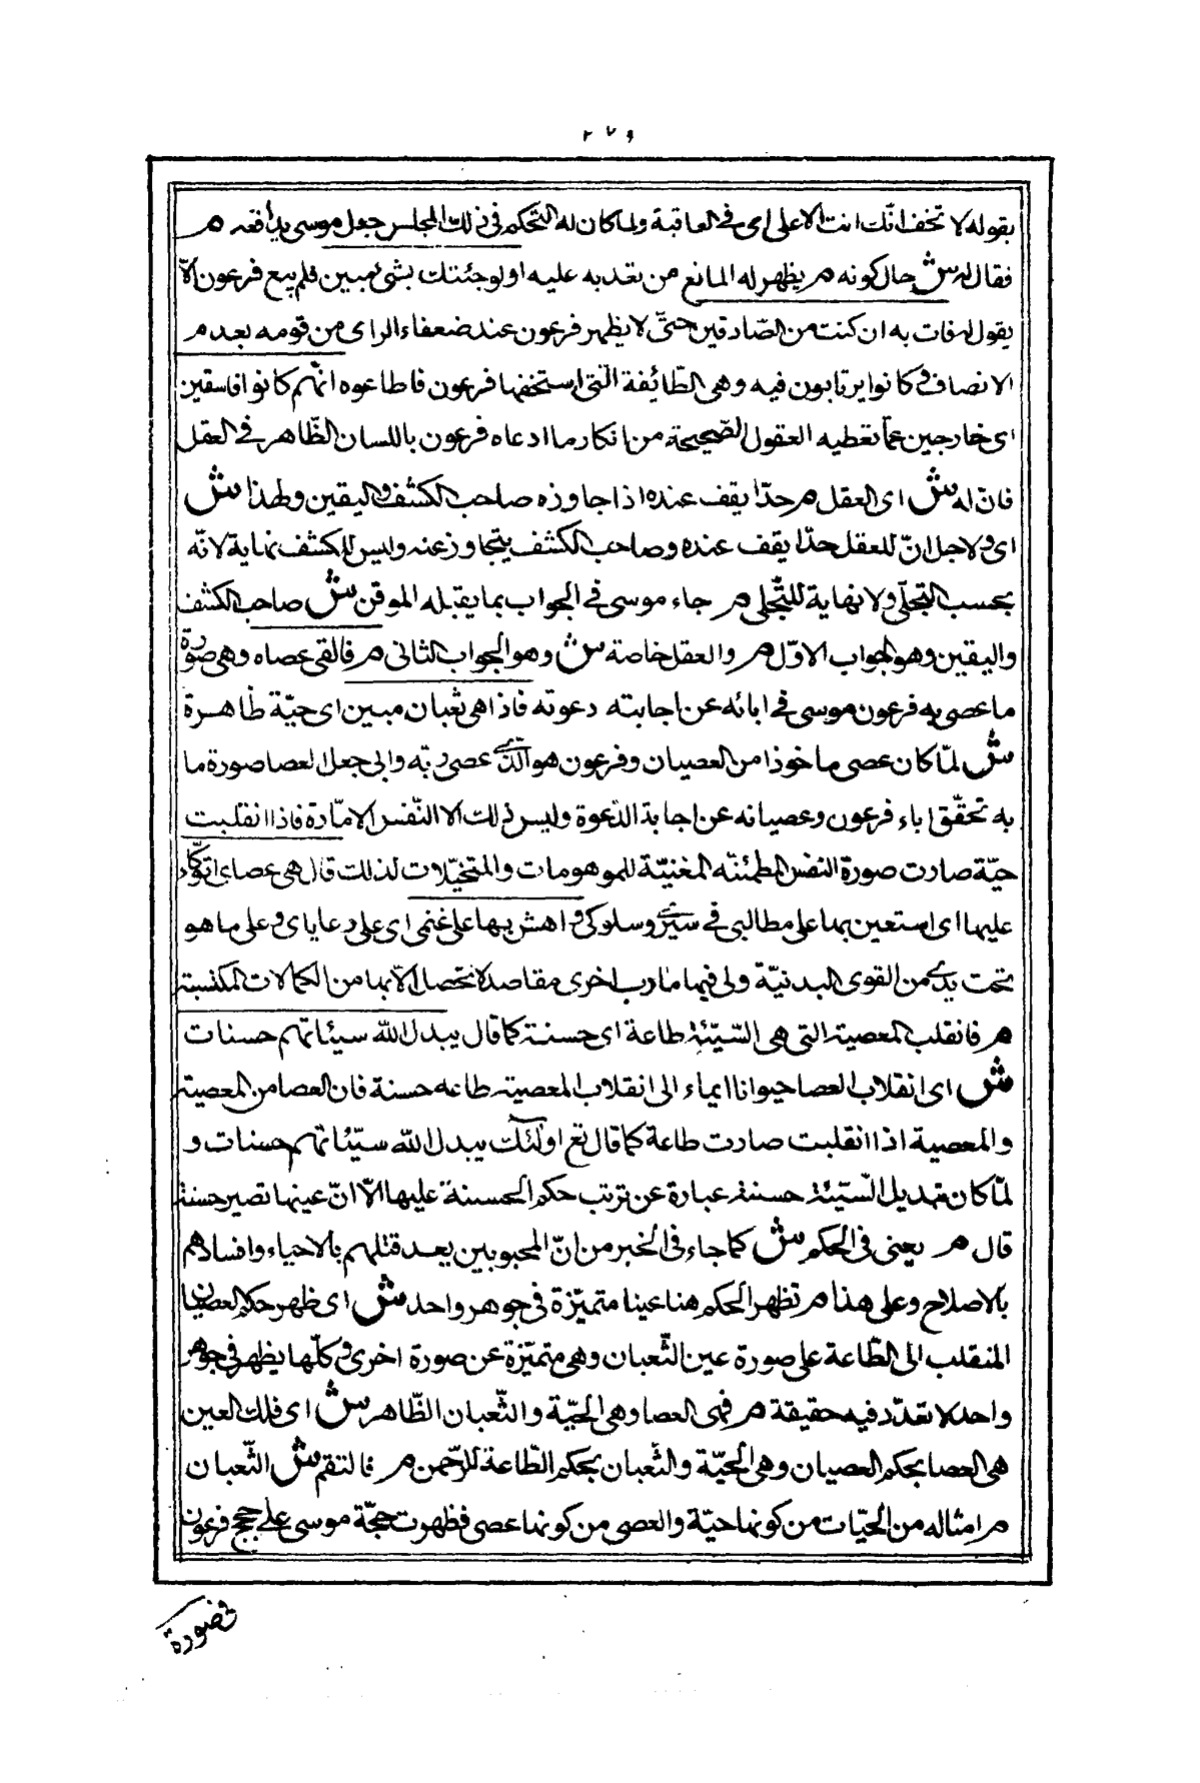 ٢٧٩
بقوله لا تخف انّك انت الاعلى اى فى العاقبة ولما كان له التحكم فى ذلك المجلس جعل موسى يدافعه م
فقال له ش حال كونه م يظهر له المانع من تعديه عليه اولو جئتك بشئ مبين فلم يسع فرعون الّا
يقول له فات به ان كنت من الصّادقين حتّى لا يظهر فرعون عند ضعفاء الراى من قومه بعدم
الانصاف فكانوا يرتابون فيه وهى الطّائفة الّتى استخفها فرعون فاطاعوه انّهم كانوا فاسقين
اى خارجين عمّا تعطيه العقول الصّحيحة من انكار ما ادعاه فرعون باللسان الظّاهر فى العقل
فانّ له ش اى العقل م حدّا يقف عنده اذا جاوزه صاحب الكشف واليقين ولهذا ش
اى ولاجل انّ للعقل حدّا يقف عنده وصاحب الكشف يتجاوز عنه وليس للكشف نهاية لانّه
بحسب التجلّى ولا نهاية للتّجلى م جاء موسى فى الجواب بما يقبله الموقن ش صاحب الكشف
واليقين وهو الجواب الاوّل م والعقل خاصة ش وهو الجواب الثانى م فالقى عصاه وهى صورة
ما عصى به فرعون موسى فى ابائه عن اجابته دعوته فاذا هى ثعبان مبين اى حيّة ظاهرة
ش لمّا كان عصى ماخوذا من العصيان وفرعون هو الّذى عصى ربّه وابى جعل العصا صورة ما
به تحقّق اباء فرعون وعصيانه عن اجابة الدّعوة وليس ذلك الا النّفس الامّارة فاذا انقلبت
حيّة صارت صورة النفس المطمئنّه المغنيّة للموهومات والمتخيّلات لذلك قال هى عصاى اتوكّاء
عليها اى استعين بها على مطالبى فى سيرى وسلوكى واهش بها على غنمى اى على رعاياى وعلى ما هو
تحت يدى من القوى البدنيّة ولى فيها مارب اخرى مقاصد لا تحصل الّا بها من الكمالات المكتسبة
م فانقلب المعصية التى هى السّيّئة طاعة اى حسنة كما قال يبدل اللّه سيئاتهم حسنات
ش اى انقلاب العصا حيوانا ايماء الى انقلاب المعصية طاعه حسنة فان العصا من المعصية
والمعصية اذا انقلبت صارت طاعة كما قال تع اولئك يبدل اللّه سيّئاتهم حسنات و
لمّا كان تبديل السّيّئة حسنة عبارة عن ترتب حكم الحسنة عليها الّا انّ عينها تصير حسنة
قال م يعنى فى الحكم ش كما جاء فى الخبر من انّ المحبوبين يعد قتلهم بالاحياء وافسادهم
بالاصلاح وعلى هذا م تظهر الحكم هنا عينا متميّزة فى جوهر واحد ش اى ظهر حكم العصيان
المنقلب الى الطّاعة على صورة عين الثّعبان وهى متميّزة عن صورة اخرى وكلّها يظهر فى جوهر
واحد لا تعدّد فيه حقيقة م فهى العصا وهى الحيّة والثّعبان الظّاهر ش اى فلك العين
هى العصا بحكم العصيان وهى الحيّة والثّعبان بحكم الطّاعة للرّحمن م فالتقم ش الثّعبان
م امثاله من الحيّات من كونها حيّة والعصى من كونها عصى فظهرت حجّة موسى على حجج فرعون